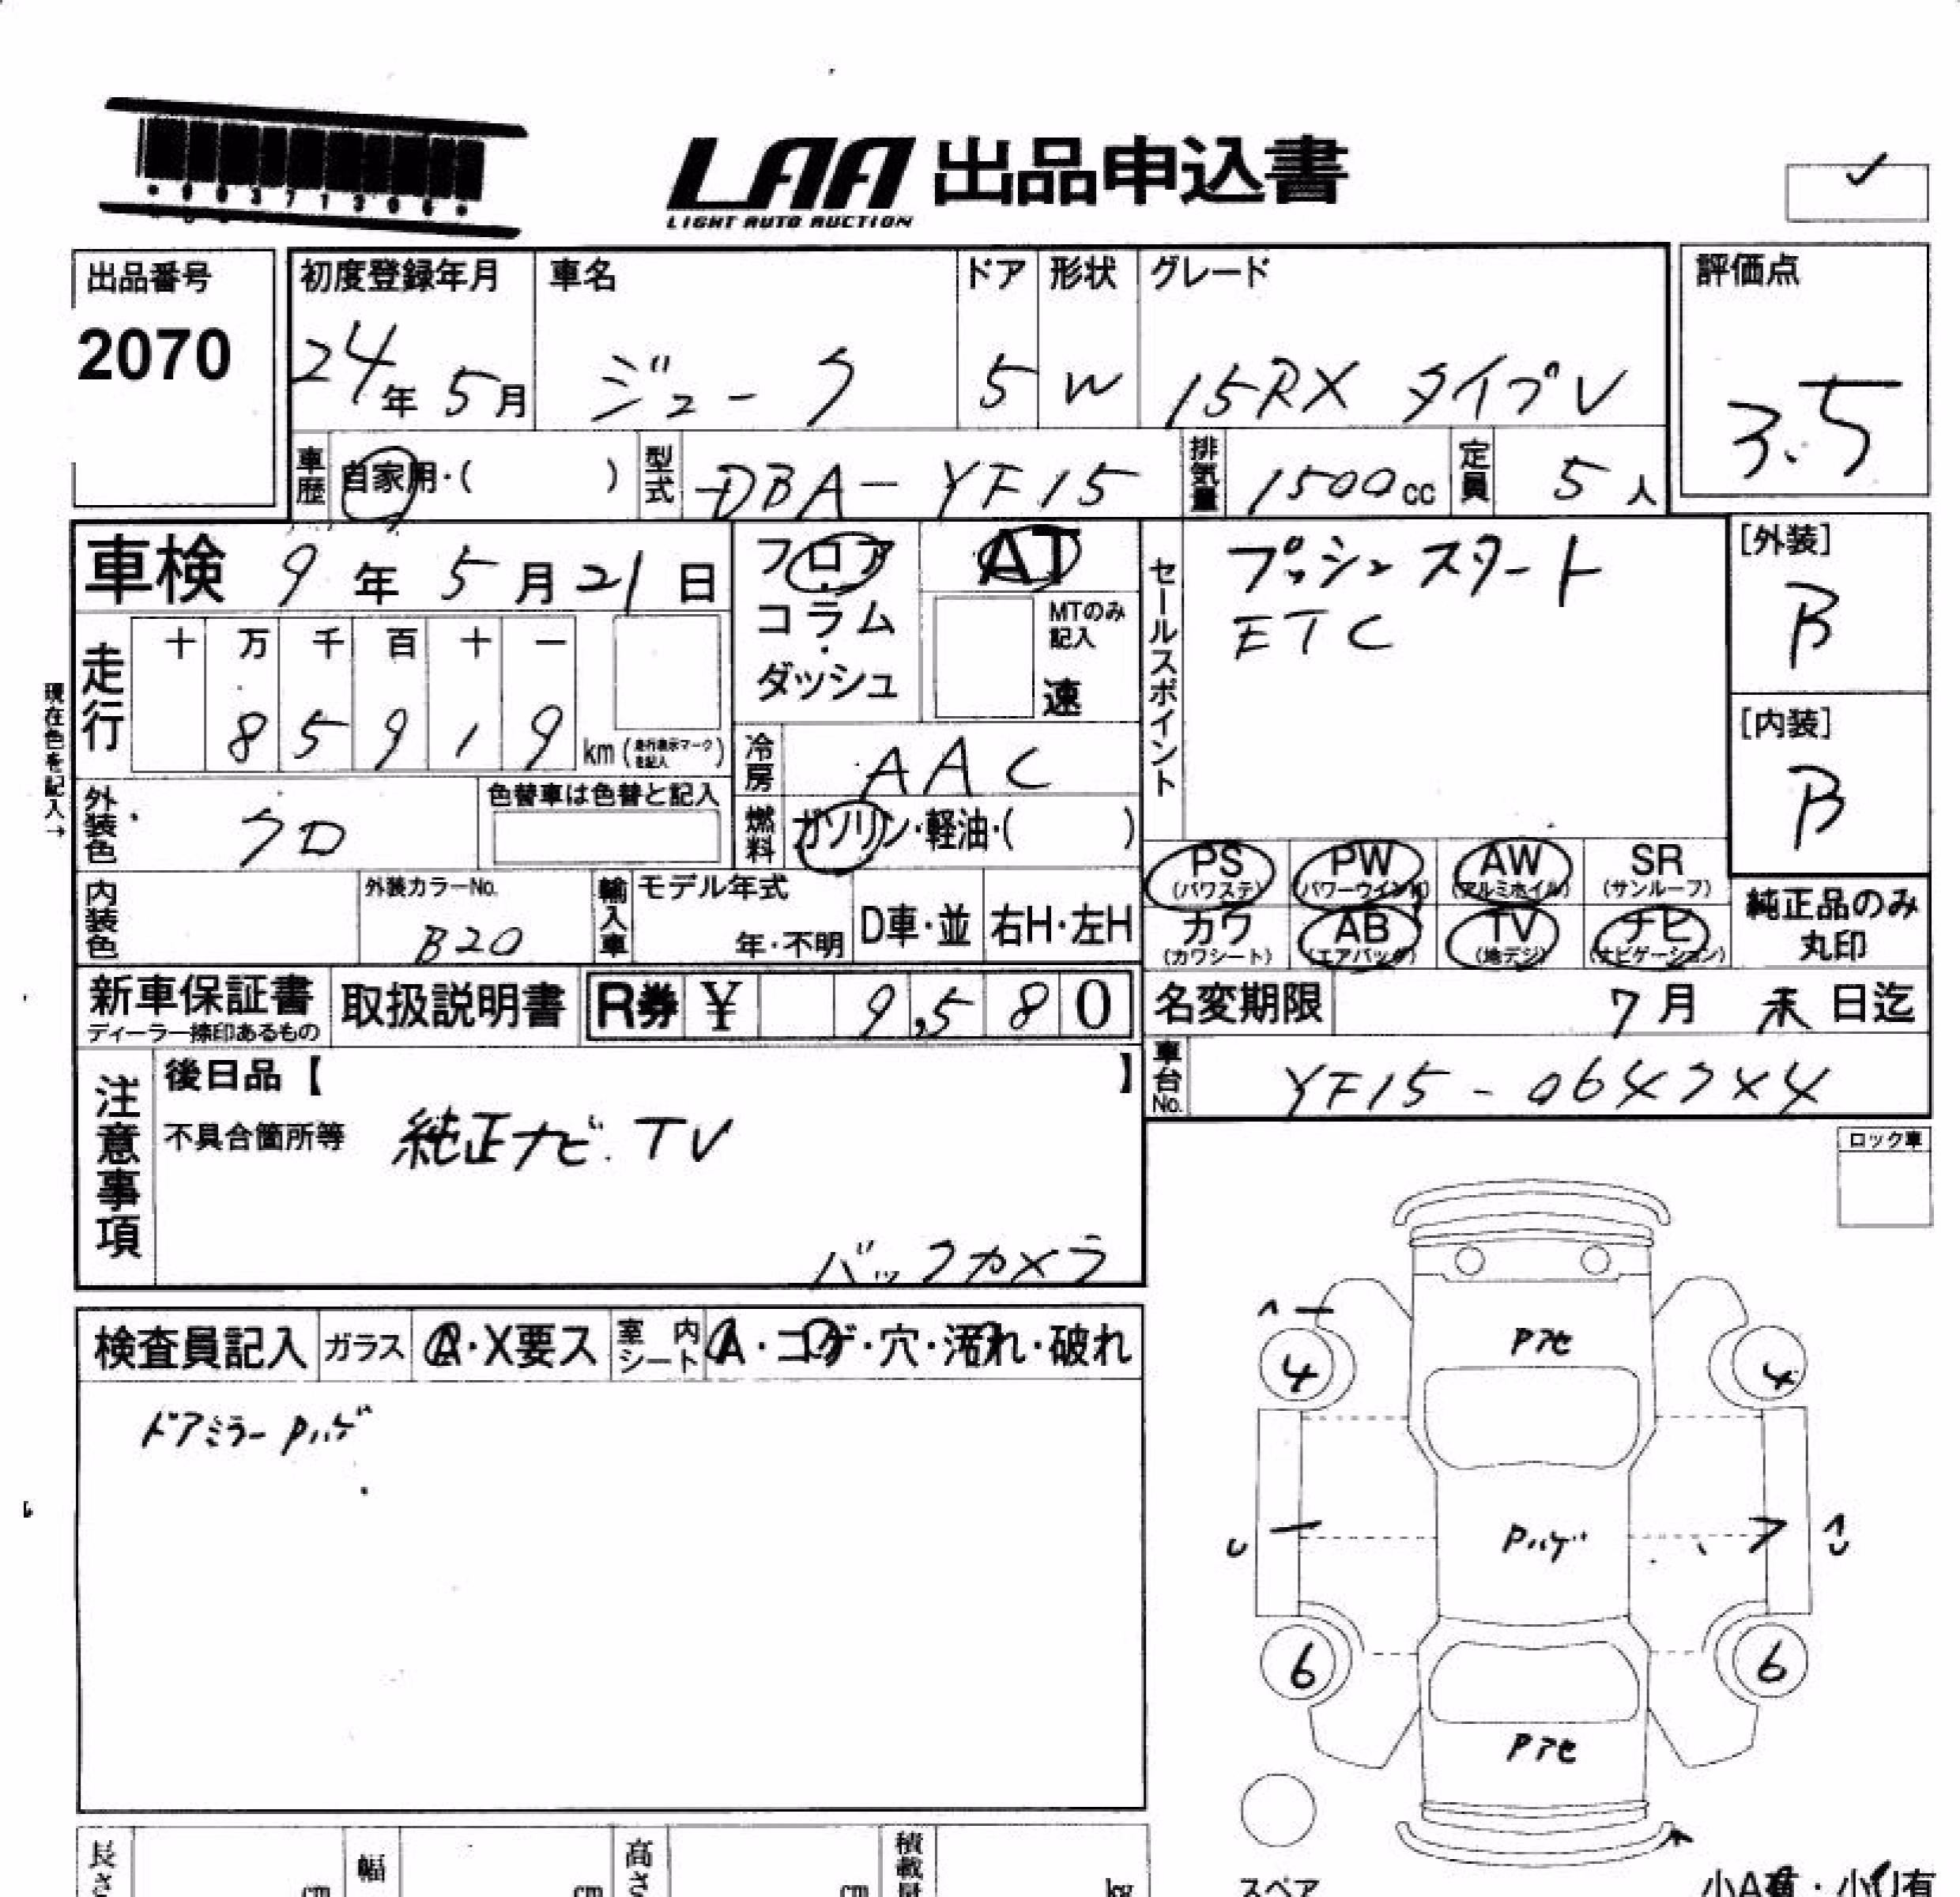 LAA 出品申込書
LIGHT AUTO AUCTION
出品番号
2070
初度登録年月
24年 5月
車名
ジューク
ドア
5
形状
W
グレード
15RX タイプV
評価点
3.5
車歴
自家用・( )
型式
DBA-YF15
排気量
1500cc
定員
5人
車検 9年 5月 21日
フロア
・
コラム
・
ダッシュ
AT
MTのみ
記入
速
セールスポイント
プッシュスタート
ETC
[外装]
B
[内装]
B
現在色を記入→
走行
十 万 千 百 十 一
8 5 9 1 9 km (走行表示マークを記入)
冷房
AAC
外装色
クロ
色替車は色替と記入
燃料
ガソリン・軽油・( )
PS
(パワステ)
PW
(パワーウインド)
AW
(アルミホイル)
SR
(サンルーフ)
カワ
(カワシート)
AB
(エアバック)
TV
(地デジ)
ナビ
(ナビゲーション)
純正品のみ
丸印
内装色
外装カラーNo.
B20
輸入車
モデル年式
年・不明
D車・並
右H・左H
新車保証書
ディーラー捺印あるもの
取扱説明書
R券 ¥ 9,580
名変期限 7月 末日迄
車台No.
YF15-064744
注意事項
後日品【 】
不具合箇所等
純正ナビ.TV
バックカメラ
ロック車
検査員記入
ガラス
A・X要ス
室内
シート
A・コゲ・穴・汚れ・破れ
ドアミラー Pハゲ
Pアセ
4
4
Pハゲ
6
6
Pアセ
長さ
cm
幅
cm
高さ
cm
積載量
kg
スペア
小A有・小U有